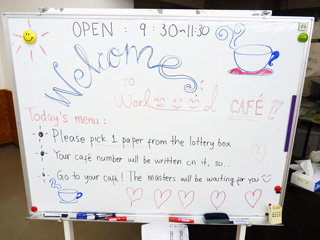 OPEN : 9:30~11:30
Welcome
to
World CAFÉ!!
Today's menu:
Please pick 1 paper from the lottery box
Your café number will be written on it, so..
Go to your café! The masters will be waiting for you